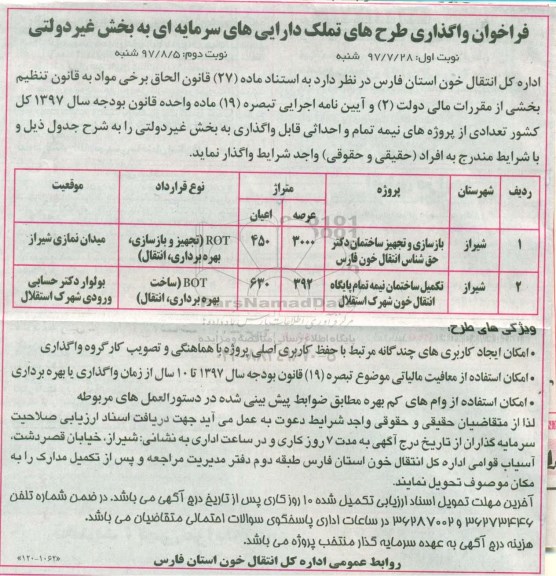 فراخوان واگذاری طرح های تملک دارایی های سرمایه ای به بخش غیردولتی
نوبت اول: ۹۷/۷/۲۸ شنبه نوبت دوم: ۹۷/۸/۵ شنبه
اداره کل انتقال خون استان فارس در نظر دارد به استناد ماده (۲۷) قانون الحاق برخی مواد به قانون تنظیم
بخشی از مقررات مالی دولت (۲) و آیین نامه اجرایی تبصره (۱۹) ماده واحده قانون بودجه سال ۱۳۹۷ کل
کشور تعدادی از پروژه های نیمه تمام و احداثی قابل واگذاری به بخش غیردولتی را به شرح جدول ذیل و
با شرایط مندرج به افراد (حقیقی و حقوقی) واجد شرایط واگذار نماید.
ردیف شهرستان پروژه متراژ نوع قرارداد موقعیت
عرصه اعیان
۱ شیراز بازسازی و تجهیز ساختمان دکتر ۳۰۰۰ ۴۵۰ ROT (تجهیز و بازسازی، میدان نمازی شیراز
حق شناس انتقال خون فارس بهره برداری، انتقال)
۲ شیراز تکمیل ساختمان نیمه تمام پایگاه ۳۹۲ ۶۳۰ BOT (ساخت بولوار دکتر حسابی
انتقال خون شهرک استقلال بهره برداری، انتقال) ورودی شهرک استقلال
ویژگی های طرح:
• امکان ایجاد کاربری های چندگانه مرتبط با حفظ کاربری اصلی پروژه با هماهنگی و تصویب کارگروه واگذاری
• امکان استفاده از معافیت مالیاتی موضوع تبصره (۱۹) قانون بودجه سال ۱۳۹۷ تا ۱۰ سال از زمان واگذاری یا بهره برداری
• امکان استفاده از وام های کم بهره مطابق ضوابط پیش بینی شده در دستورالعمل های مربوطه
لذا از متقاضیان حقیقی و حقوقی واجد شرایط دعوت به عمل می آید جهت دریافت اسناد ارزیابی صلاحیت
سرمایه گذاران از تاریخ درج آگهی به مدت ۷ روز کاری و در ساعت اداری به نشانی: شیراز، خیابان قصردشت،
آسیاب قوامی اداره کل انتقال خون استان فارس طبقه دوم دفتر مدیریت مراجعه و پس از تکمیل مدارک را به
مکان موصوف تحویل نمایند.
آخرین مهلت تحویل اسناد ارزیابی تکمیل شده ۱۰ روز کاری پس از تاریخ درج آگهی می باشد. در ضمن شماره تلفن
۳۶۲۷۳۴۴۶ و ۳۶۲۸۷۰۰۲ در ساعات اداری پاسخگوی سوالات احتمالی متقاضیان می باشد.
هزینه درج آگهی به عهده سرمایه گذار منتخب پروژه می باشد.
روابط عمومی اداره کل انتقال خون استان فارس
«۱۲۰-۱۰۶۲»